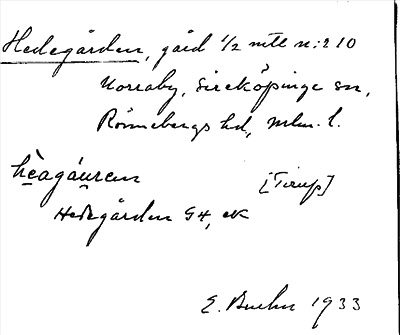 Hedegården, gård 1/2 mtl n:r 10
Norraby, Sireköpinge sn,
Rönnebergs hd, Mlm. l.
hèagáuren [Tirup]
Hedegården G4, ek
E. 1933